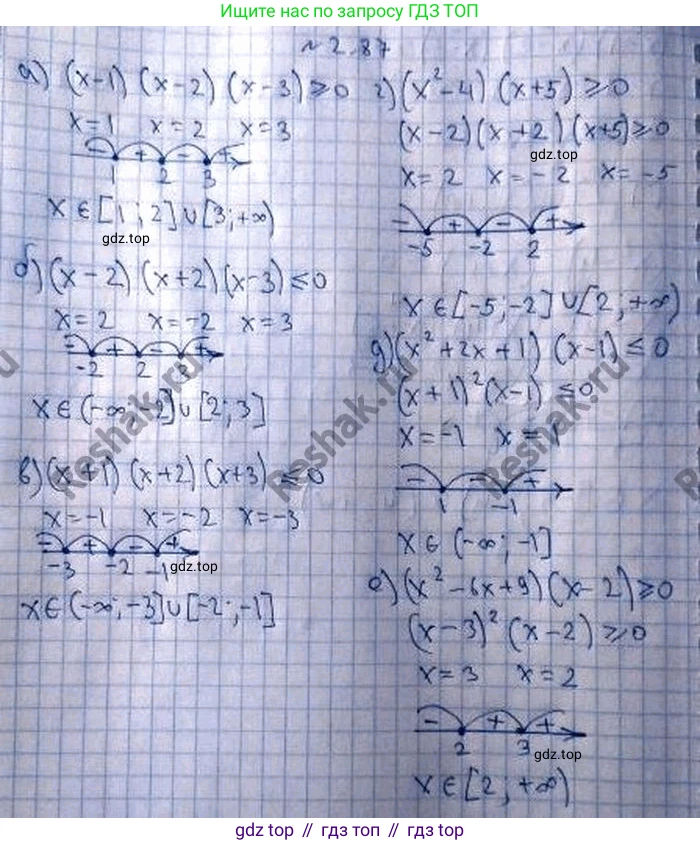 Ищите нас по запросу ГДЗ ТОП
№ 2.87
а) (x-1) (x-2) (x-3) ≥ 0
x=1 x=2 x=3
- + - +
1 2 3
x ∈ [1; 2] ∪ [3; +∞)
gdz.top
б) (x-2) (x+2) (x-3) ≤ 0
x=2 x=-2 x=3
- + - +
-2 2 3
x ∈ (-∞; -2] ∪ [2; 3]
в) (x+1) (x+2) (x+3) ≤ 0
x=-1 x=-2 x=-3
- + - +
-3 -2 -1
gdz.top
x ∈ (-∞; -3] ∪ [-2; -1]
г) (x²-4) (x+5) ≥ 0
(x-2) (x+2) (x+5) ≥ 0
gdz.top
x=2 x=-2 x=-5
- + - +
-5 -2 2
x ∈ [-5; -2] ∪ [2; +∞)
д) (x²+2x+1) (x-1) ≤ 0
(x+1)² (x-1) ≤ 0
x=-1 x=1
- - +
1 -1
x ∈ (-∞; -1]
е) (x²-6x+9) (x-2) ≥ 0
(x-3)² (x-2) ≥ 0
x=3 x=2
- + +
2 3
gdz.top
x ∈ [2; +∞)
Reshak.ru
Reshak.ru
Reshak.ru
gdz top // гдз топ // gdz.top